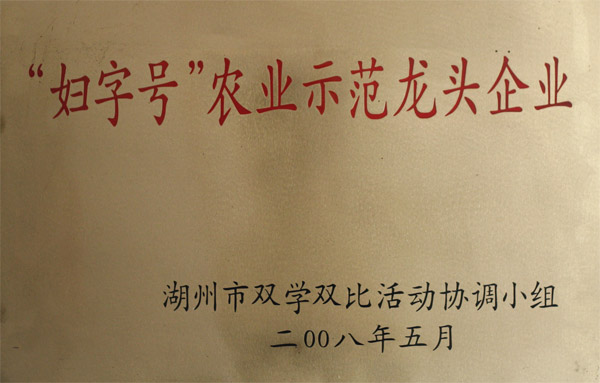 “妇字号”农业示范龙头企业
湖州市双学双比活动协调小组
二00八年五月